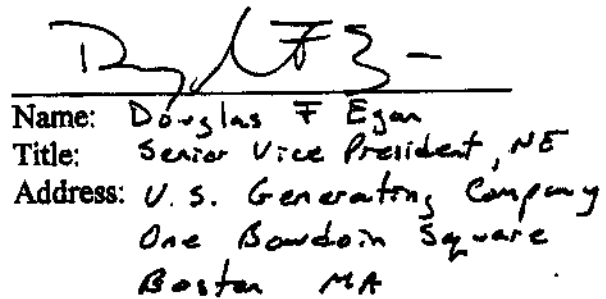 Name: Douglas F Egan
Title: Senior Vice President, NE
Address: U.S. Generating Company
One Bowdoin Square
Boston MA